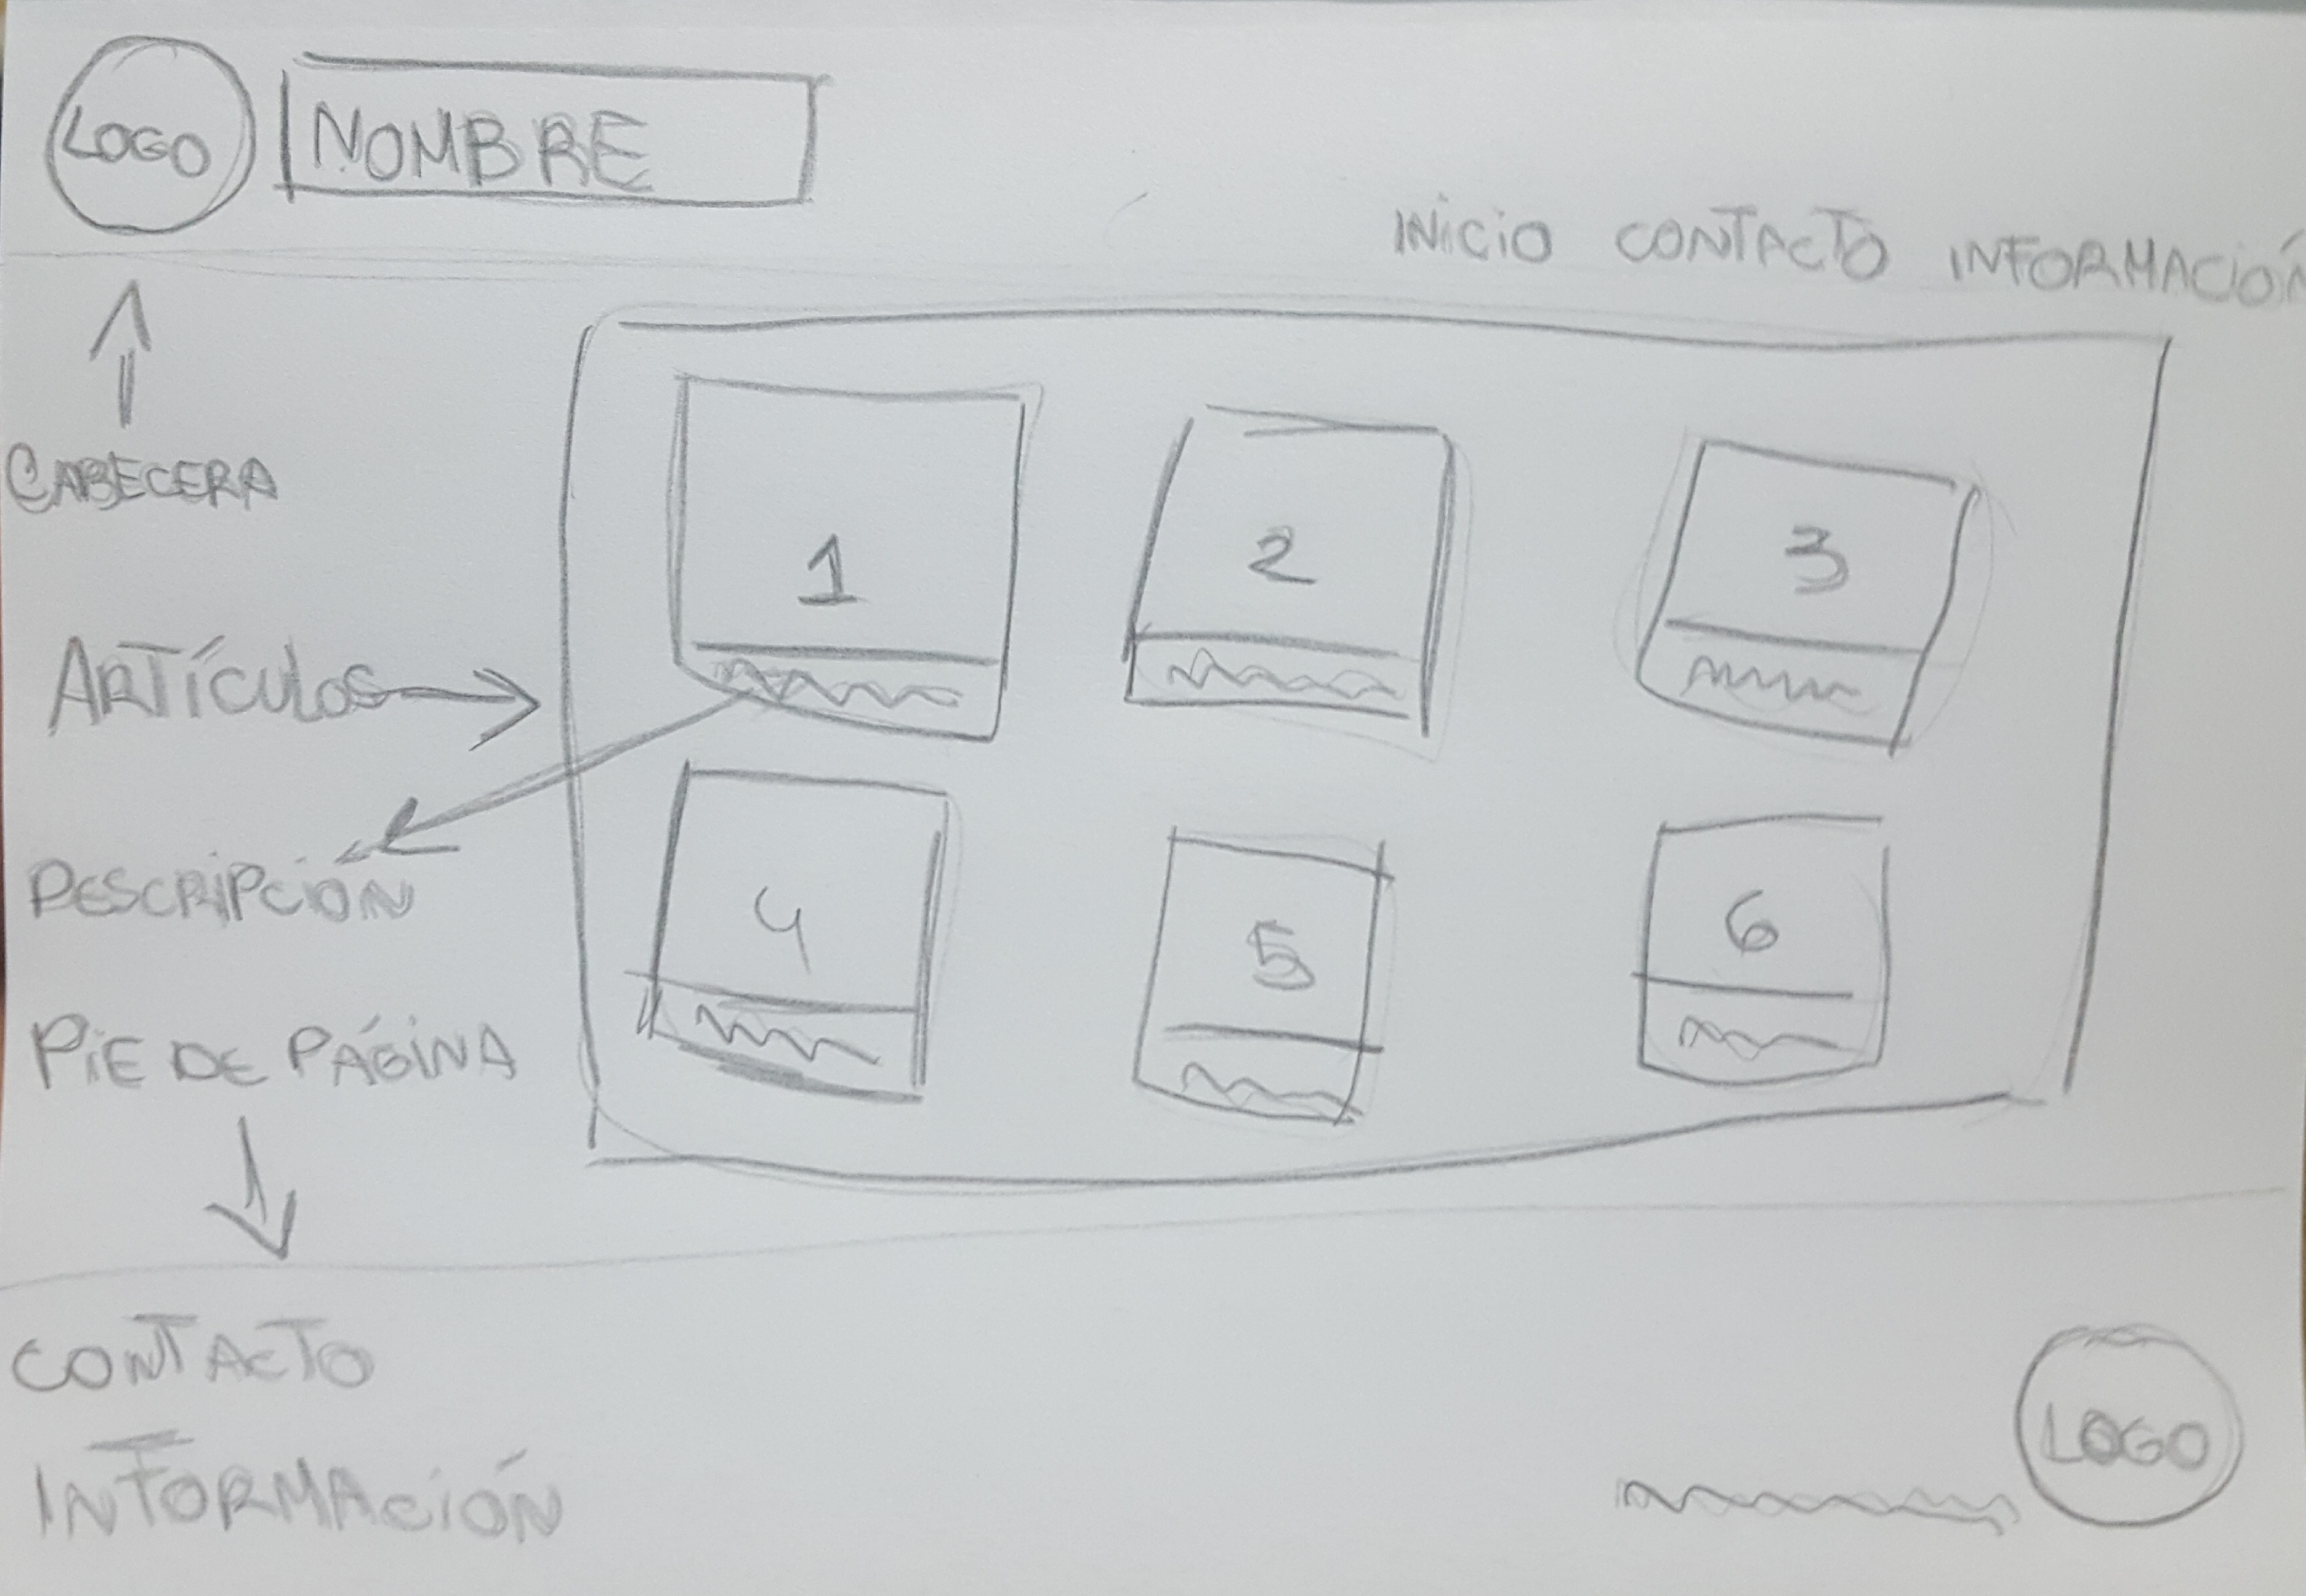 LOGO NOMBRE
INICIO CONTACTO INFORMACIÓN
CABECERA
1 2 3
ARTÍCULOS
DESCRIPCIÓN
4 5 6
PIE DE PÁGINA
CONTACTO
INFORMACIÓN
LOGO